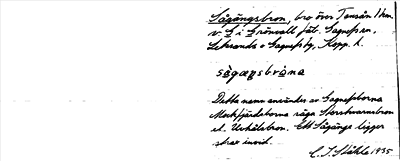 Sågängsbron, bro över Tensån 1 km.
v. S i Grönvall fal. Sagnefs en,
Lekvands o Sagnefs by, Kopp. l.
sågæŋsbròna
Detta namn användes av Sagnefsborna
Mockfjärdsborna säga Storkvarnsbron
el. Ushålsbron. Ett Sågänge ligger
strax invid.
C. J. Ståhle 1935